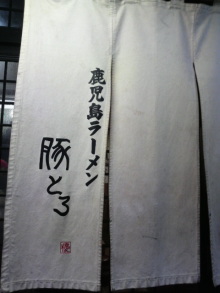 鹿児島ラーメン
豚とろ